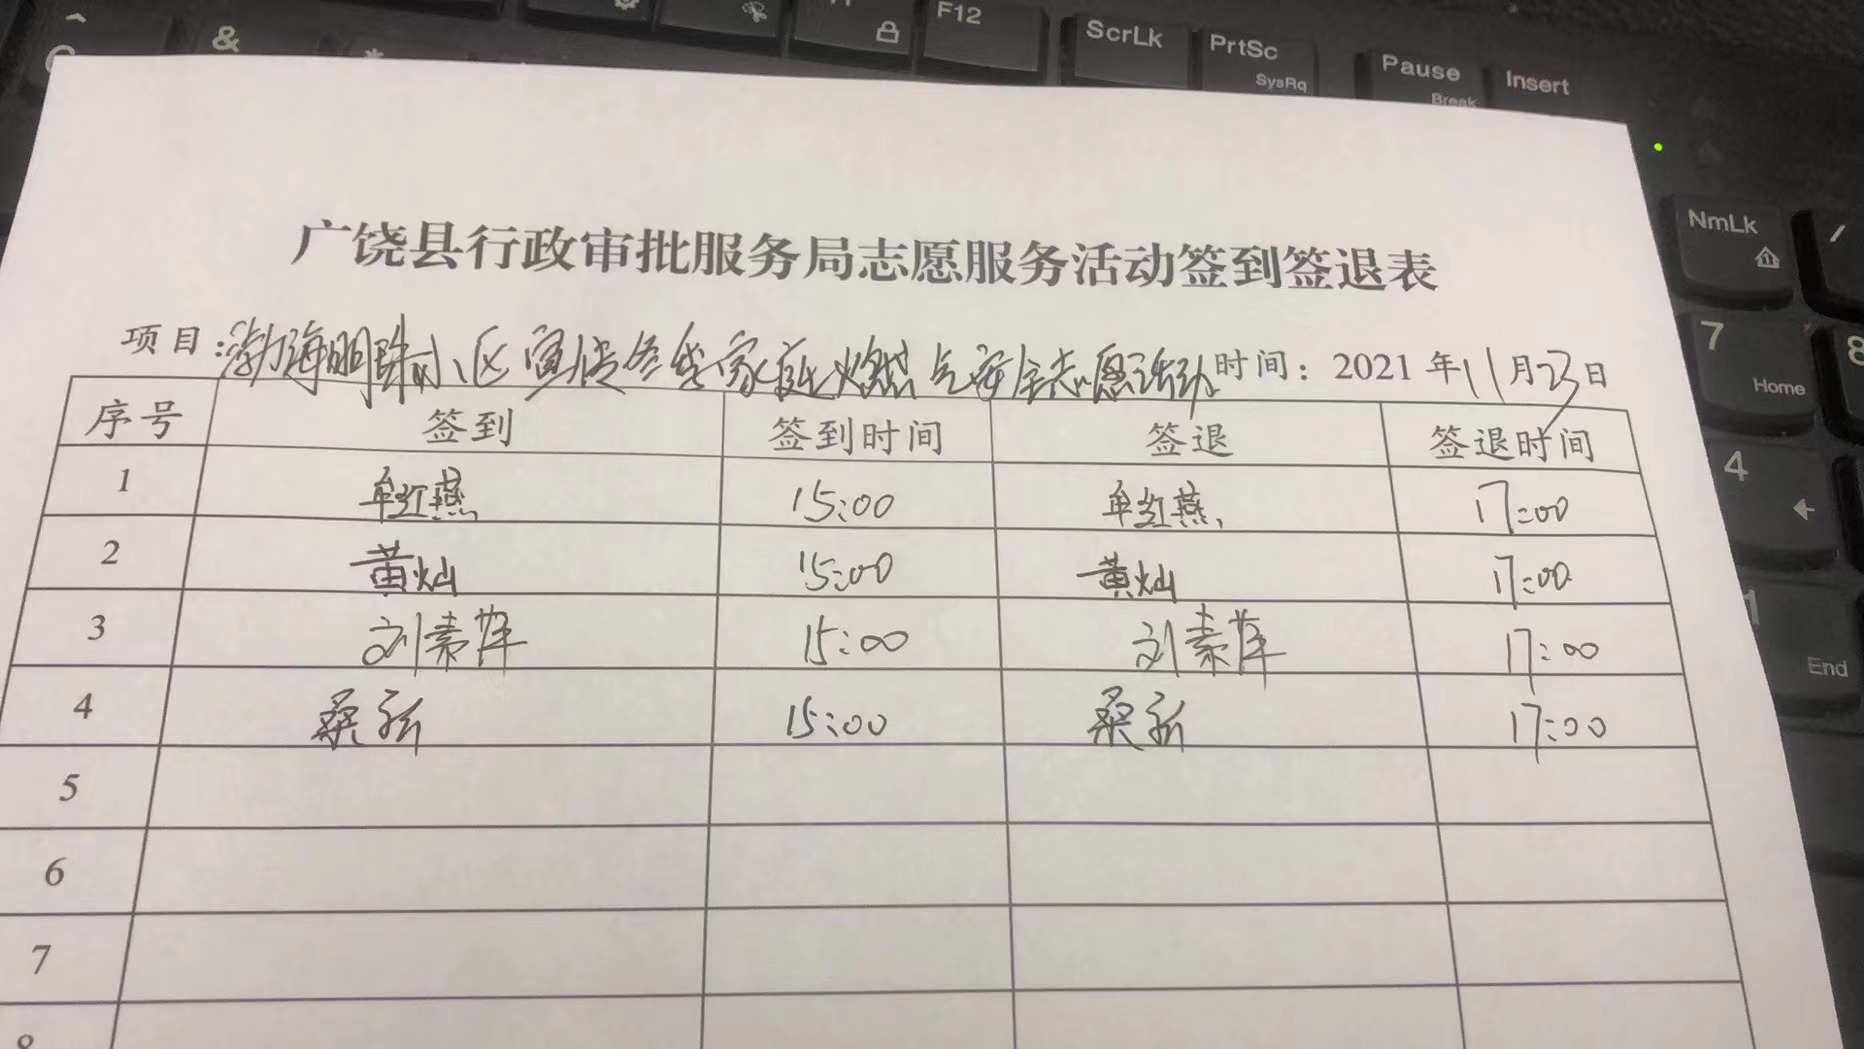 &
*
F12
ScrLk
PrtSc
SysRq
Pause
Break
Insert
NmLk
7
Home
8
4
1
End
广饶县行政审批服务局志愿服务活动签到签退表
项目:渤海明珠小区宣传冬季家庭燃气安全志愿活动 时间:2021年11月23日
序号 签到 签到时间 签退 签退时间
1 牟红燕 15:00 牟红燕 17:00
2 黄灿 15:00 黄灿 17:00
3 刘素萍 15:00 刘素萍 17:00
4 桑 15:00 桑 17:00
5
6
7
8